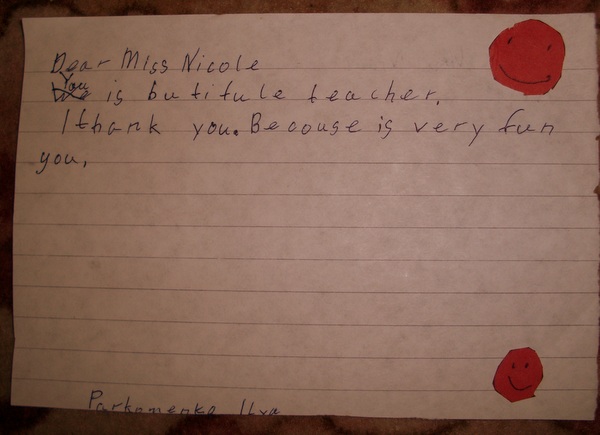 Dear Miss Nicole
You is butifule teacher.
I thank you. Becouse is very fun
you.
Parkomenko Ilya